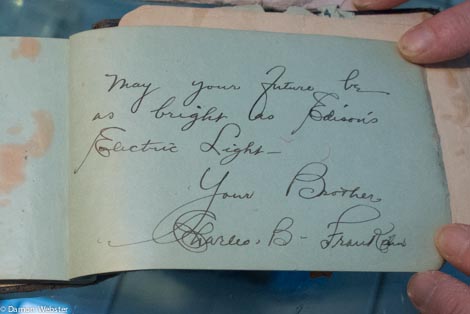 May your future be
as bright as Edison's
Electric Light —
Your Brother
Charles. B - Franklin
© Damon Webster